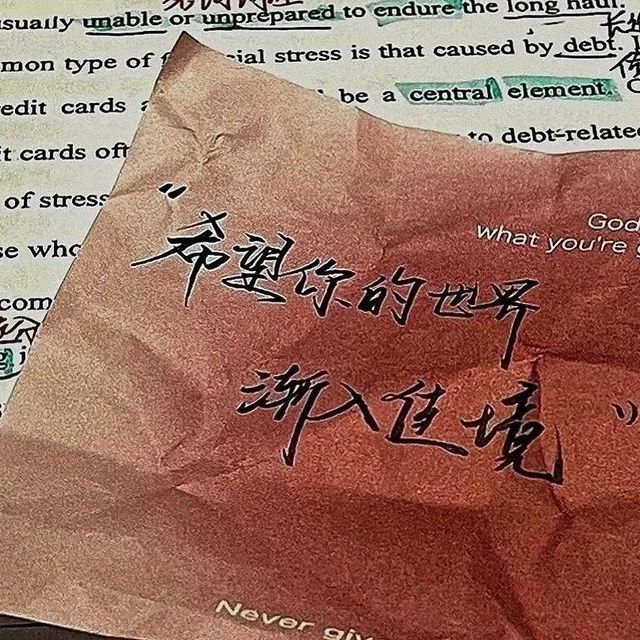 usually unable or unprepared to endure the long haul.
mon type of financial stress is that caused by debt.
redit cards be a central element.
to debt-relate
it cards oft
of stress
se who
com
God
what you're
“希望你的世界
渐入佳境”
Never giv